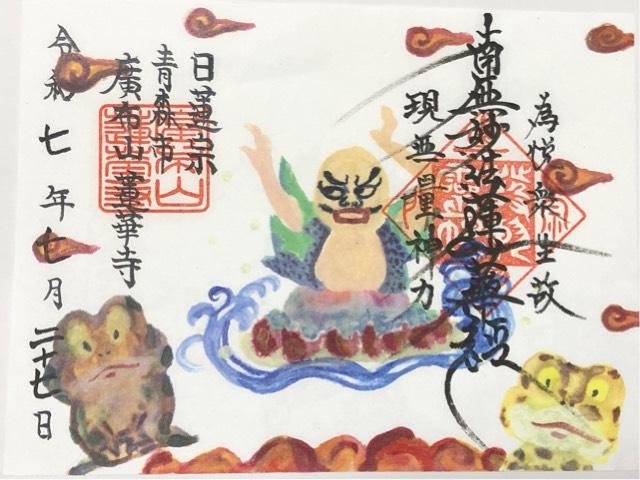 為悦衆生故
南無妙法蓮華経
現無量神力
日蓮宗
青森市
廣布山 蓮華寺
令和七年七月二十七日